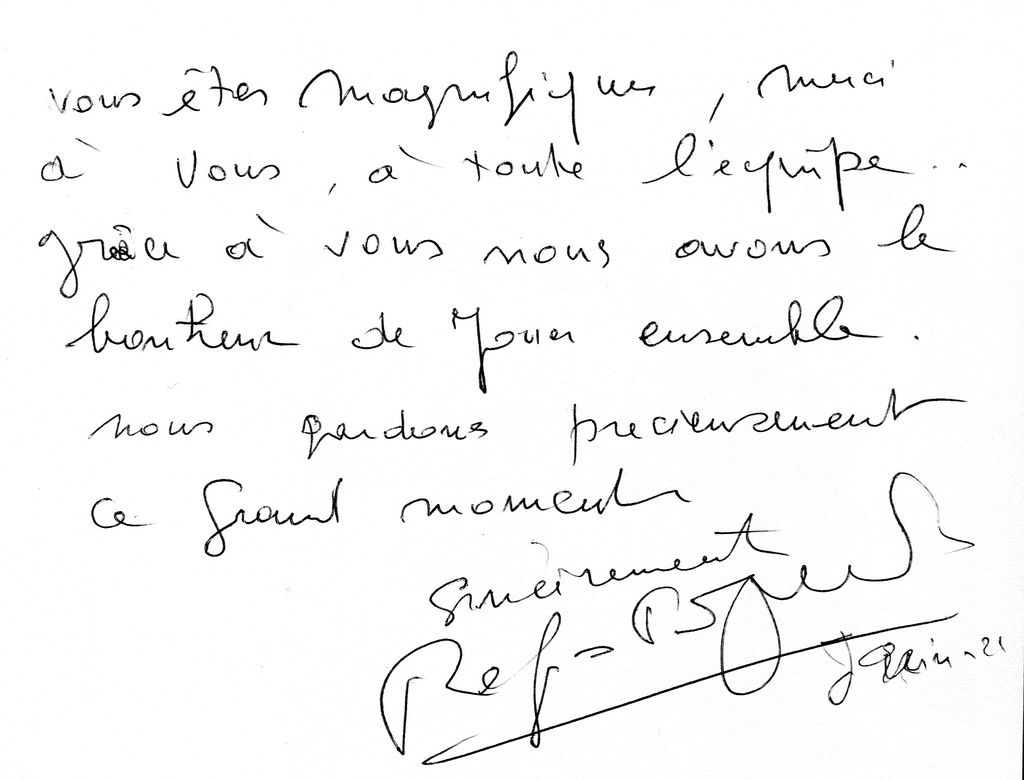 vous êtes magnifiques, merci
à vous, à toute l'équipe..
grâce à vous nous avons le
bonheur de Jouer ensemble.
nous gardons precieusement
ce Grand moment
sincèrement